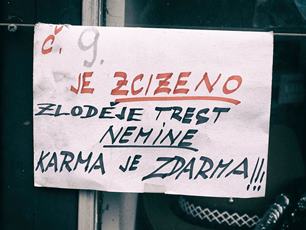 č. 9.
JE ZCIZENO
ZLODĚJE TREST
NEMINE
KARMA JE ZDARMA!!!